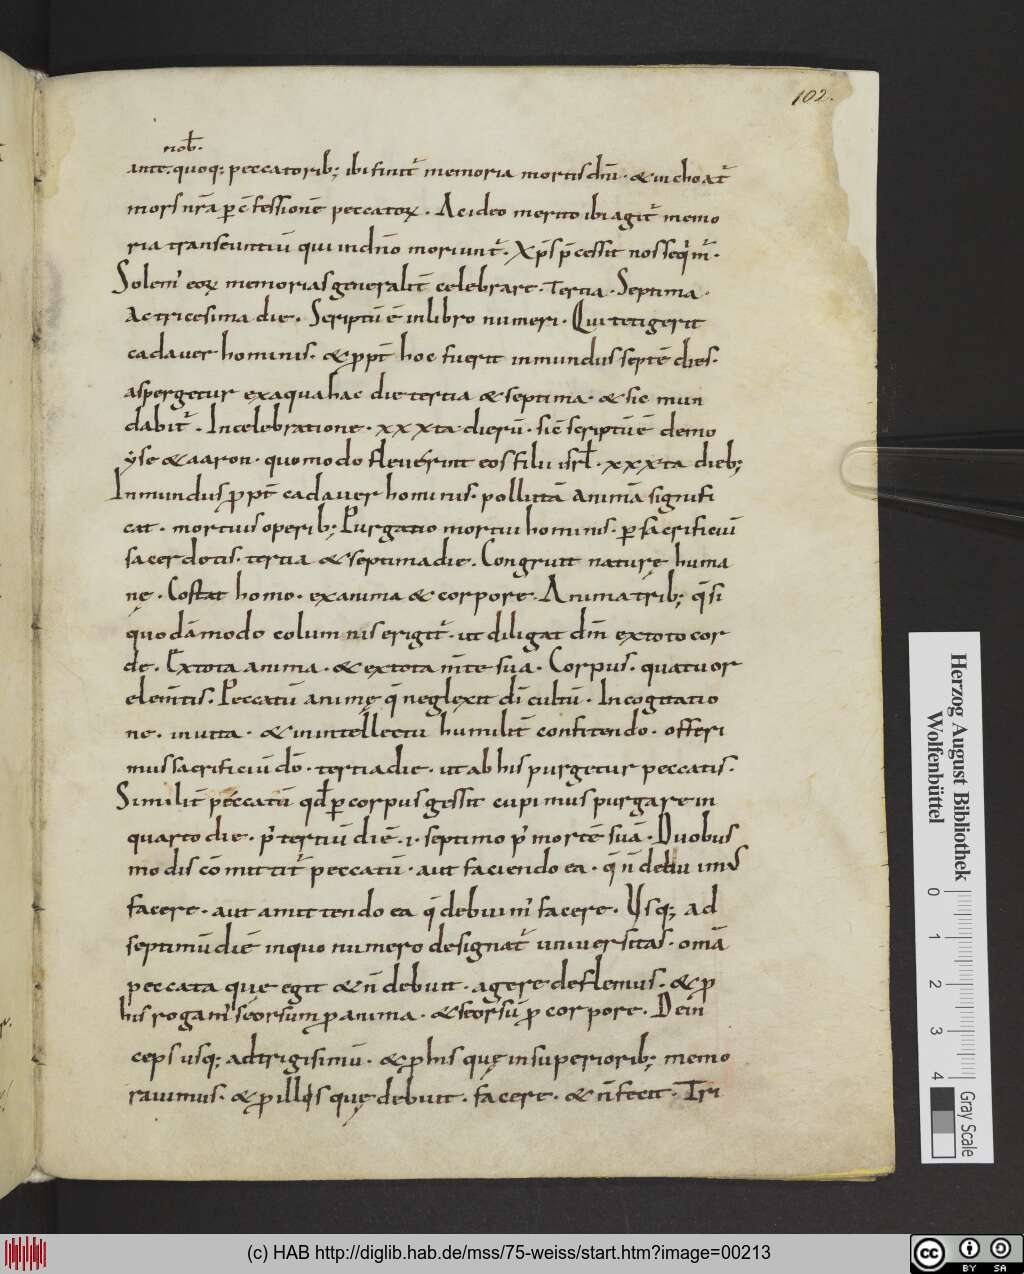 102.
nob̄.
ante. quoq; peccatorib; ibi finit᷑ memoria mortis dn̄i · & inchoat᷑
mors nr̄a p̱ c̄fessionē peccatoꝝ . Ac ideo merito ibi agit᷑ memo
ria transeuntiū qui in dn̄o moriunt᷑ . Xp̄s p̄cessit nos seqim᷑ .
Solem᷒ eoꝝ memorias generalit̄ celebrare . Tertia . Septima .
Ac tricesima die . Scriptū ē in libro numeri . Qui tetigerit
cadaver hominis . & ꝓpt̄ hoc fuerit inmundus septē dies .
aspergetur ex aqua hac die tertia & septima . & sic mun
dabit᷑ . In celebratione . xxxta dierū . sic̄ scriptū ē de mo
yse & aaron . quomodo fleverunt eos filii isrl̄ . xxxta dieb;
Inmundus ꝓpt̄ cadaver hominis . pollutā animā signifi
cat . mortuis operib; Purgatio mortui hominis . ꝑ sacrificiū
sacerdotis . tertia & septima die . Congruit naturę huma
nę . Cōstat homo . ex anima & corpore . Anima trib; q̄si
quodāmodo columnis erigit᷑ . ut diligat dm̄ ex toto cor
de . Ex tota anima . & ex tota m̄te sua . Corpus . quatuor
elem̄tis . Peccatū animę q̄ neglexit dī cultū . In cogitatio
ne . in vita . & in intellectu humilit̄ confitendo . offeri
mus sacrificiū dō . tertia die . ut ab his purgetur peccatis .
Similit̄ peccatū qd̄ ꝑ corpus gessit cupimus purgare in
quarto die . p᷒ tertiū diē . i . septimo p᷒ mortē suā . Duobus
modis cōmittit᷑ peccatū . aut faciendo ea . q̄ n̄ debuimus
facere . aut amittendo ea q̄ debuim᷒ facere . Usq; ad
septimū diē in quo numero designat᷑ universitas . omā
peccata que egit & n̄ debuit . agere deflemus . & ꝓ
his rogam᷒ seorsum ꝓ anima . & seorsū ꝓ corpore . Dein
ceps usq; ad trigisimū . & ꝓ his quę in superiorib; memo
ravimus . & ꝓ illis quę debuit . facere . & n̄ fecit . Tri
Herzog August Bibliothek
Wolfenbüttel
0 1 2 3 4
Gray Scale
(c) HAB http://diglib.hab.de/mss/75-weiss/start.htm?image=00213
cc BY SA